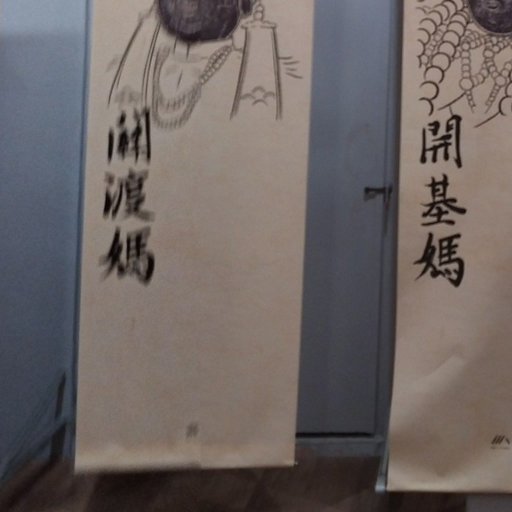 關渡媽
開基媽